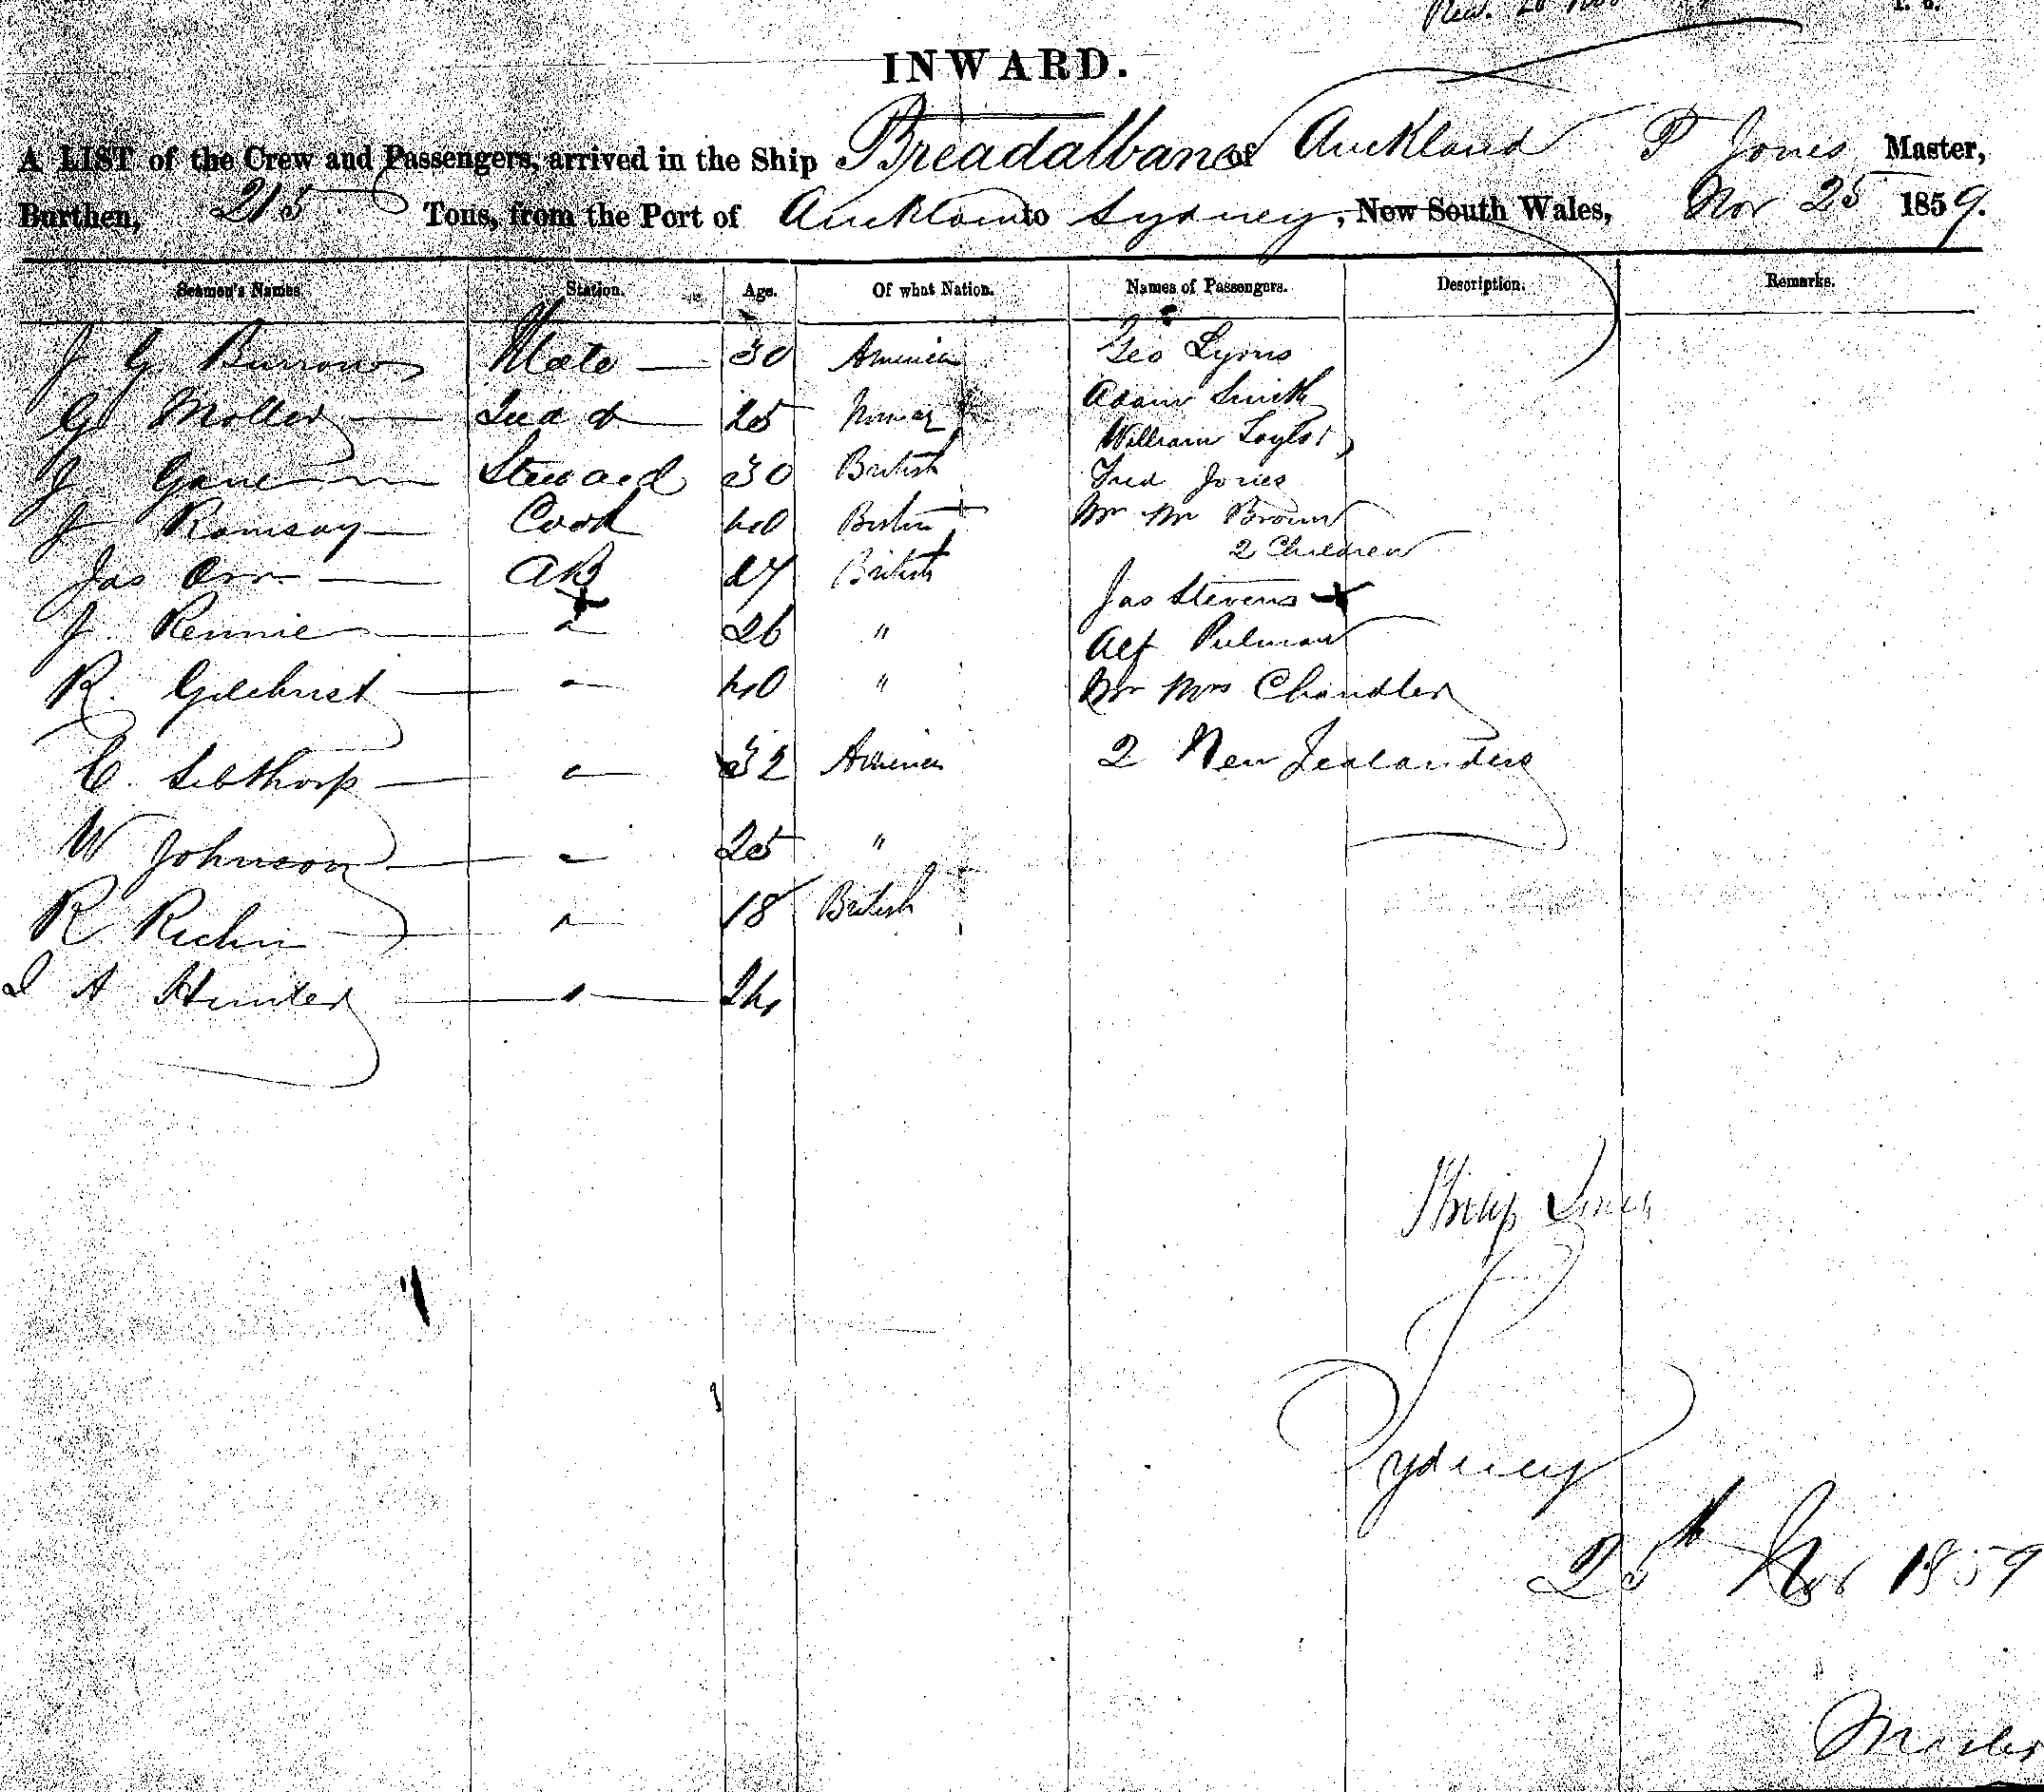 INWARD.
A LIST of the Crew and Passengers, arrived in the Ship Breadalbane of Auckland P Jones Master,
Burthen, 215 Tons, from the Port of Auckland to Sydney, New South Wales, Nov 25 1859.
Seamen's Names. Station. Age. Of what Nation. Names of Passengers. Description. Remarks.
J G Burrows Mate 30 America Geo Lyons
G Moller 2nd do 25 Adam Smith
William Taylor
J Steward 30 British Fred Jones
J Ramsay Cook 40 Mr Mrs Brown
2 Children
Jas Orr AB 27 British Jas Stevens
J. Rennie " 26 " Alf Pulman
R. Gilchrist " 40 " Mr Mrs Chandler
C. Sibthorp " 32 America 2 New Zealanders
W Johnson " 25 "
R " 18 British
A Hunter " 24
Philip Jones
Sydney
25th Nov 1859
Master